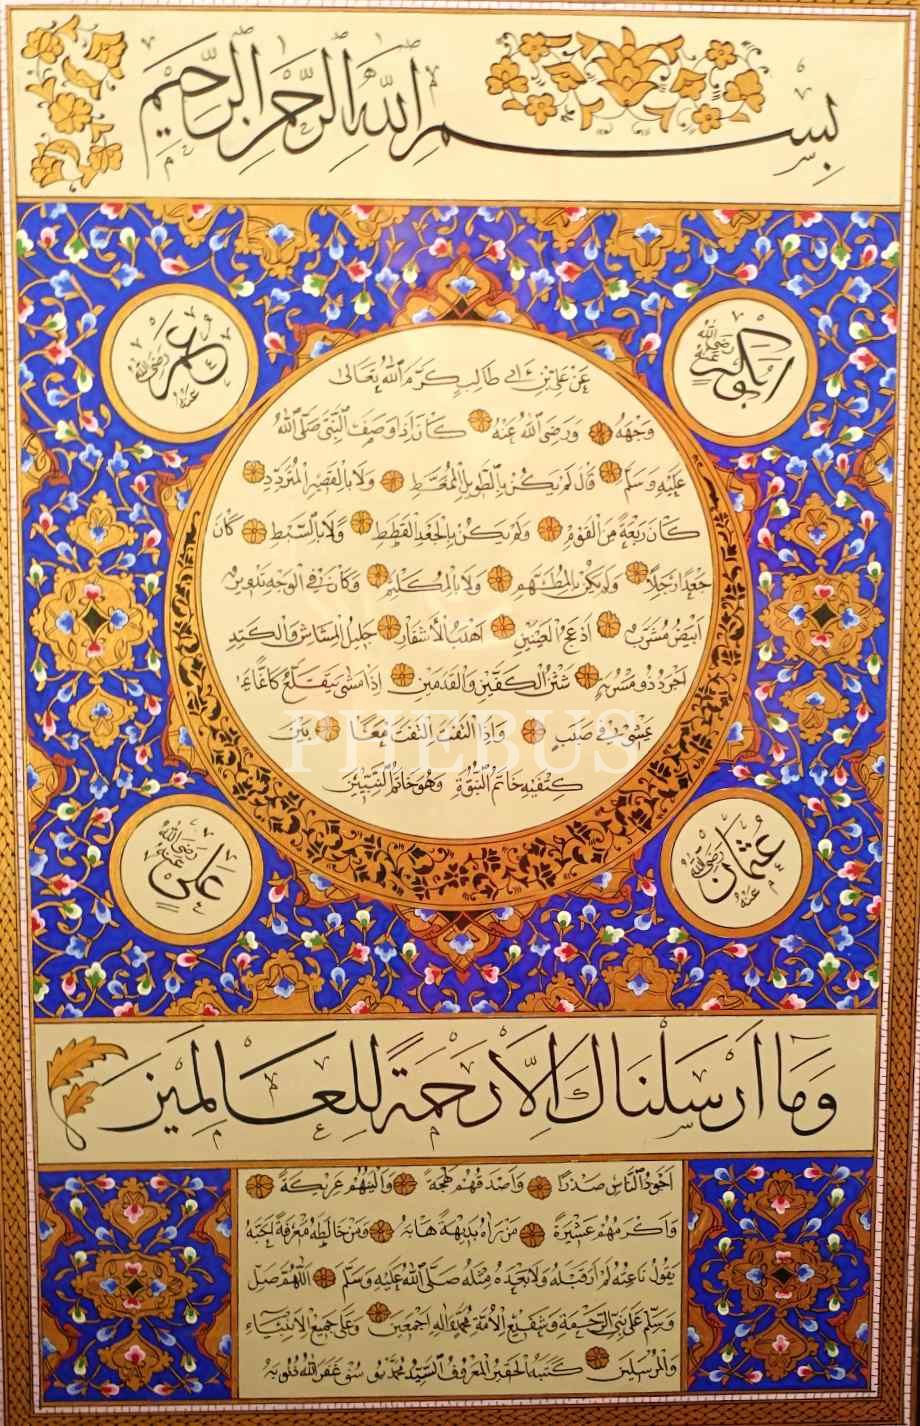 بِسْمِ اللّٰهِ الرَّحْمٰنِ الرَّحِيمِ
ابو بكر رضى الله عنه
عمر رضى الله عنه
عَنْ عَلِيِّ بْنِ اَبِى طَالِبٍ كَرَّمَ اللّٰهُ تَعَالٰى
وَجْهَهُ وَرَضِىَ اللّٰهُ عَنْهُ كَانَ اِذَا وَصَفَ النَّبِىَّ صَلَّى اللّٰهُ
عَلَيْهِ وَسَلَّمَ قَالَ لَمْ يَكُنْ بِالطَّوِيلِ الْمُمَغَّطِ وَلَا بِالْقَصِيرِ الْمُتَرَدِّدِ
كَانَ رَبْعَةً مِنَ الْقَوْمِ وَلَمْ يَكُنْ بِالْجَعْدِ الْقَطَطِ وَلَا بِالسَّبِطِ كَانَ
جَعْدًا رَجِلًا وَلَمْ يَكُنْ بِالْمُطَهَّمِ وَلَا بِالْمُكَلْثَمِ وَكَانَ فِى الْوَجْهِ تَدْوِيرٌ
اَبْيَضُ مُشْرَبٌ اَدْعَجُ الْعَيْنَيْنِ اَهْدَبُ الْاَشْفَارِ جَلِيلُ الْمُشَاشِ وَالْكَتَدِ
اَجْرَدُ ذُو مَسْرُبَةٍ شَثْنُ الْكَفَّيْنِ وَالْقَدَمَيْنِ اِذَا مَشٰى يَتَقَلَّعُ كَاَنَّمَا
يَمْشِى فِى صَبَبٍ وَاِذَا الْتَفَتَ الْتَفَتَ مَعًا بَيْنَ
كَتِفَيْهِ خَاتَمُ النُّبُوَّةِ وَهُوَ خَاتَمُ النَّبِيِّينَ
PHEBUS
عثمان رضى الله عنه
على رضى الله عنه
وَمَا اَرْسَلْنَاكَ اِلَّا رَحْمَةً لِلْعَالَمِينَ
اَجْوَدُ النَّاسِ صَدْرًا وَاَصْدَقُهُمْ لَهْجَةً وَاَلْيَنُهُمْ عَرِيكَةً
وَاَكْرَمُهُمْ عَشِيرَةً مَنْ رَاٰهُ بَدِيهَةً هَابَهُ وَمَنْ خَالَطَهُ مَعْرِفَةً اَحَبَّهُ
يَقُولُ نَاعِتُهُ لَمْ اَرَ قَبْلَهُ وَلَا بَعْدَهُ مِثْلَهُ صَلَّى اللّٰهُ عَلَيْهِ وَسَلَّمَ اَللّٰهُمَّ صَلِّ
وَسَلِّمْ عَلٰى نَبِىِّ الرَّحْمَةِ وَشَفِيعِ الْاُمَّةِ مُحَمَّدٍ وَاٰلِهِ اَجْمَعِينَ وَعَلٰى جَمِيعِ الْاَنْبِيَاءِ
وَالْمُرْسَلِينَ كَتَبَهُ الْحَقِيرُ الْمَعْرُوفُ السَّيِّدُ مُحَمَّدْ غَفَرَ اللّٰهُ ذُنُوبَهُ